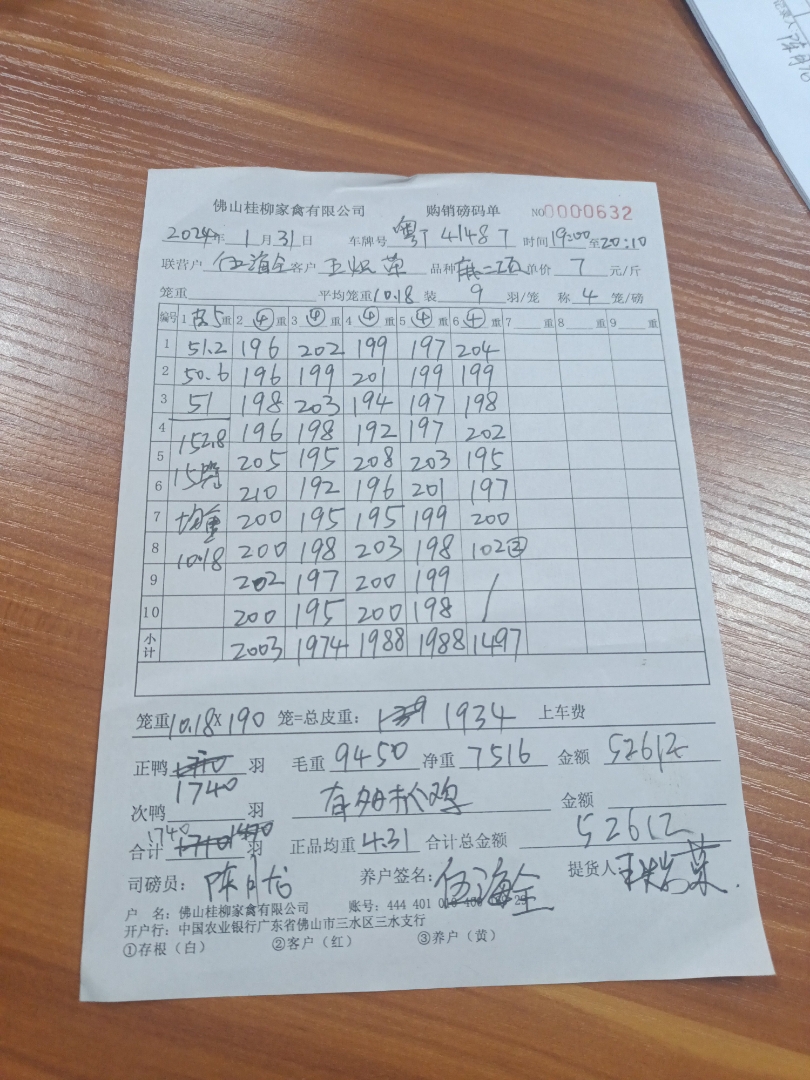 佛山桂柳家禽有限公司 购销磅码单 NO 0000632
2024年 1月31日 车牌号 粤T 41487 时间19:00至20:10
联营户 伍海全 客户 品种 单价 7 元/斤
笼重 平均笼重10.18 装 9 羽/笼 称 4 笼/磅
编号 1 皮5 重 2 ④ 重 3 ④ 重 4 ④ 重 5 ④ 重 6 ④ 重 7 重 8 重 9 重
1 51.2 196 202 199 197 204
2 50.6 196 199 201 199 199
3 51 198 203 194 197 198
4 152.8 196 198 192 197 202
5 15 205 195 208 203 195
6 210 192 196 201 197
7 均重 200 195 195 199 200
8 10.18 200 198 203 198 102②
9 202 197 200 199 /
10 200 195 200 198
小计 2003 1974 1988 1988 1497
笼重10.18X190 笼=总皮重: 1934 上车费
正鸭 羽 毛重 9450 净重 7516 金额 52612
1740
次鸭 羽 金额
1740
合计 羽 正品均重 4.31 合计总金额 52612
司磅员: 陈月 养户签名: 伍海全 提货人
户 名: 佛山桂柳家禽有限公司 账号: 444 401 010 400
开户行: 中国农业银行广东省佛山市三水区三水支行
①存根(白) ②客户(红) ③养户(黄)